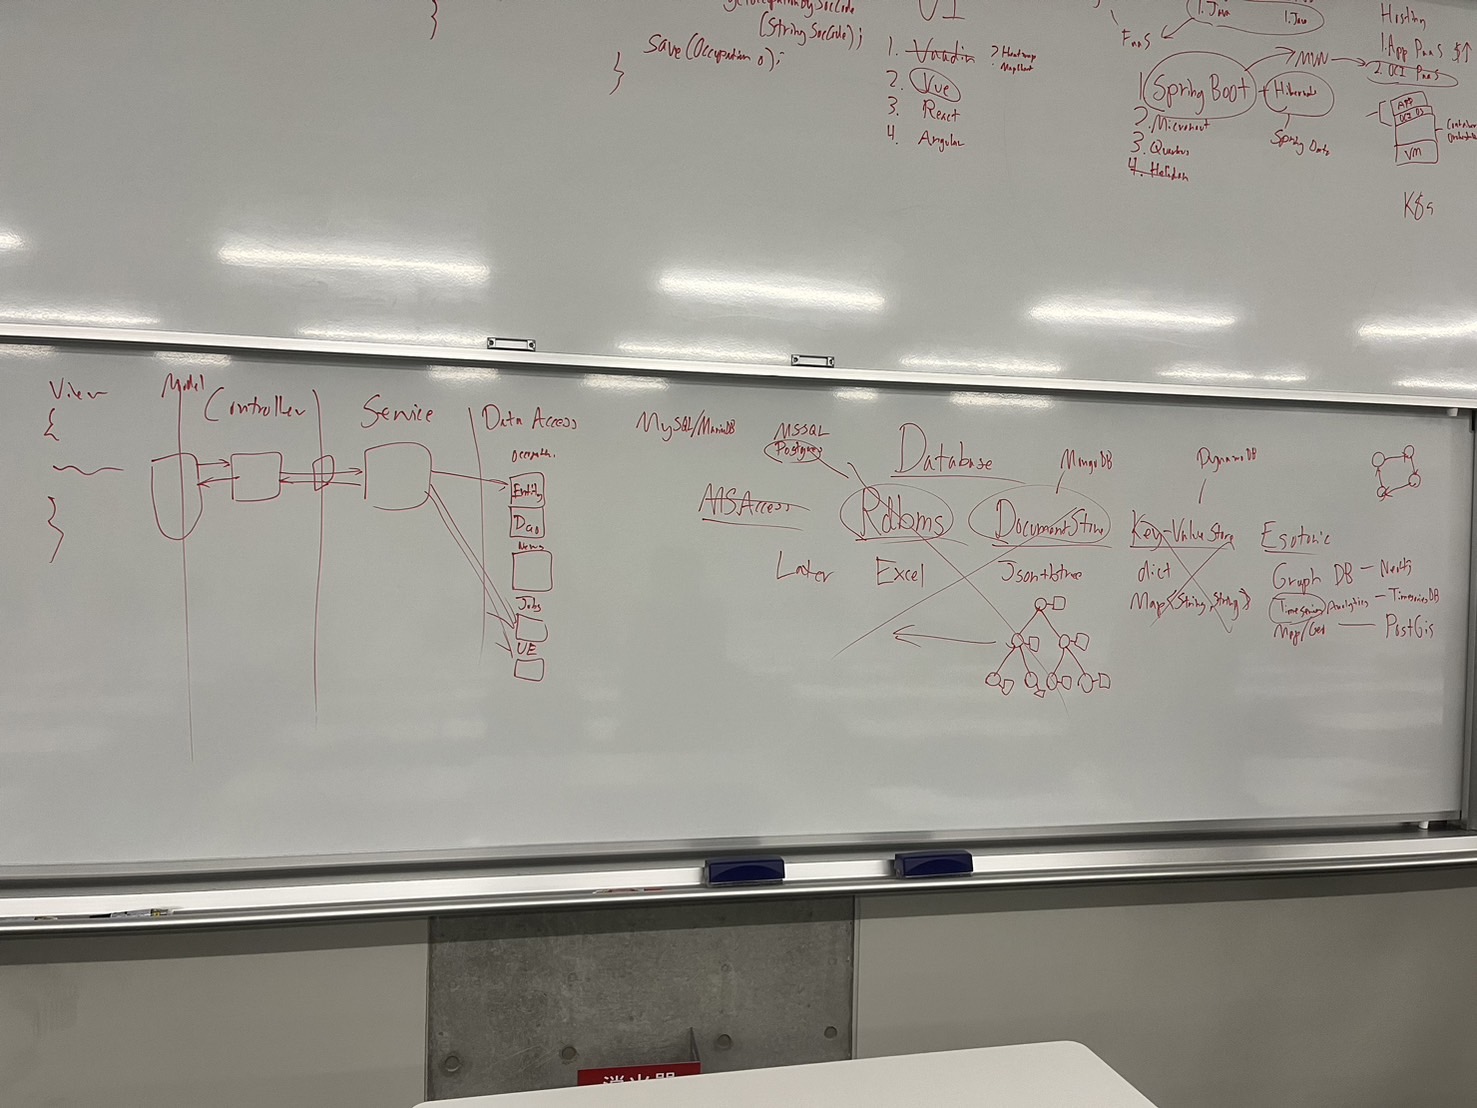 }
(String SocCode);
save(Occupation o);
}
UI
1. Vaadin
2. Vue
3. React
4. Angular
> Heatmap
FaaS
1. Java
1. Java
1 Spring Boot + Hibernate
2. Micronaut
3. Quarkus
4. Helidon
Spring Data
Hosting
1. App PaaS $↑
2. OCI PaaS
APP
VM
K8s
View
{
}
Model
Controller
Service
Data Access
Entity
Dao
News
Jobs
UE
MySQL/MariaDB
MSSQL
Postgres
Database
MongoDB
DynamoDB
MSAccess
Rdbms
Document Store
Key-Value Store
Esoteric
Later
Excel
Json+btree
dict
Map<String, String>
Graph DB — Neo4j
Timeseries/Analytics — TimeseriesDB
Map/Geo — PostGis
消火器